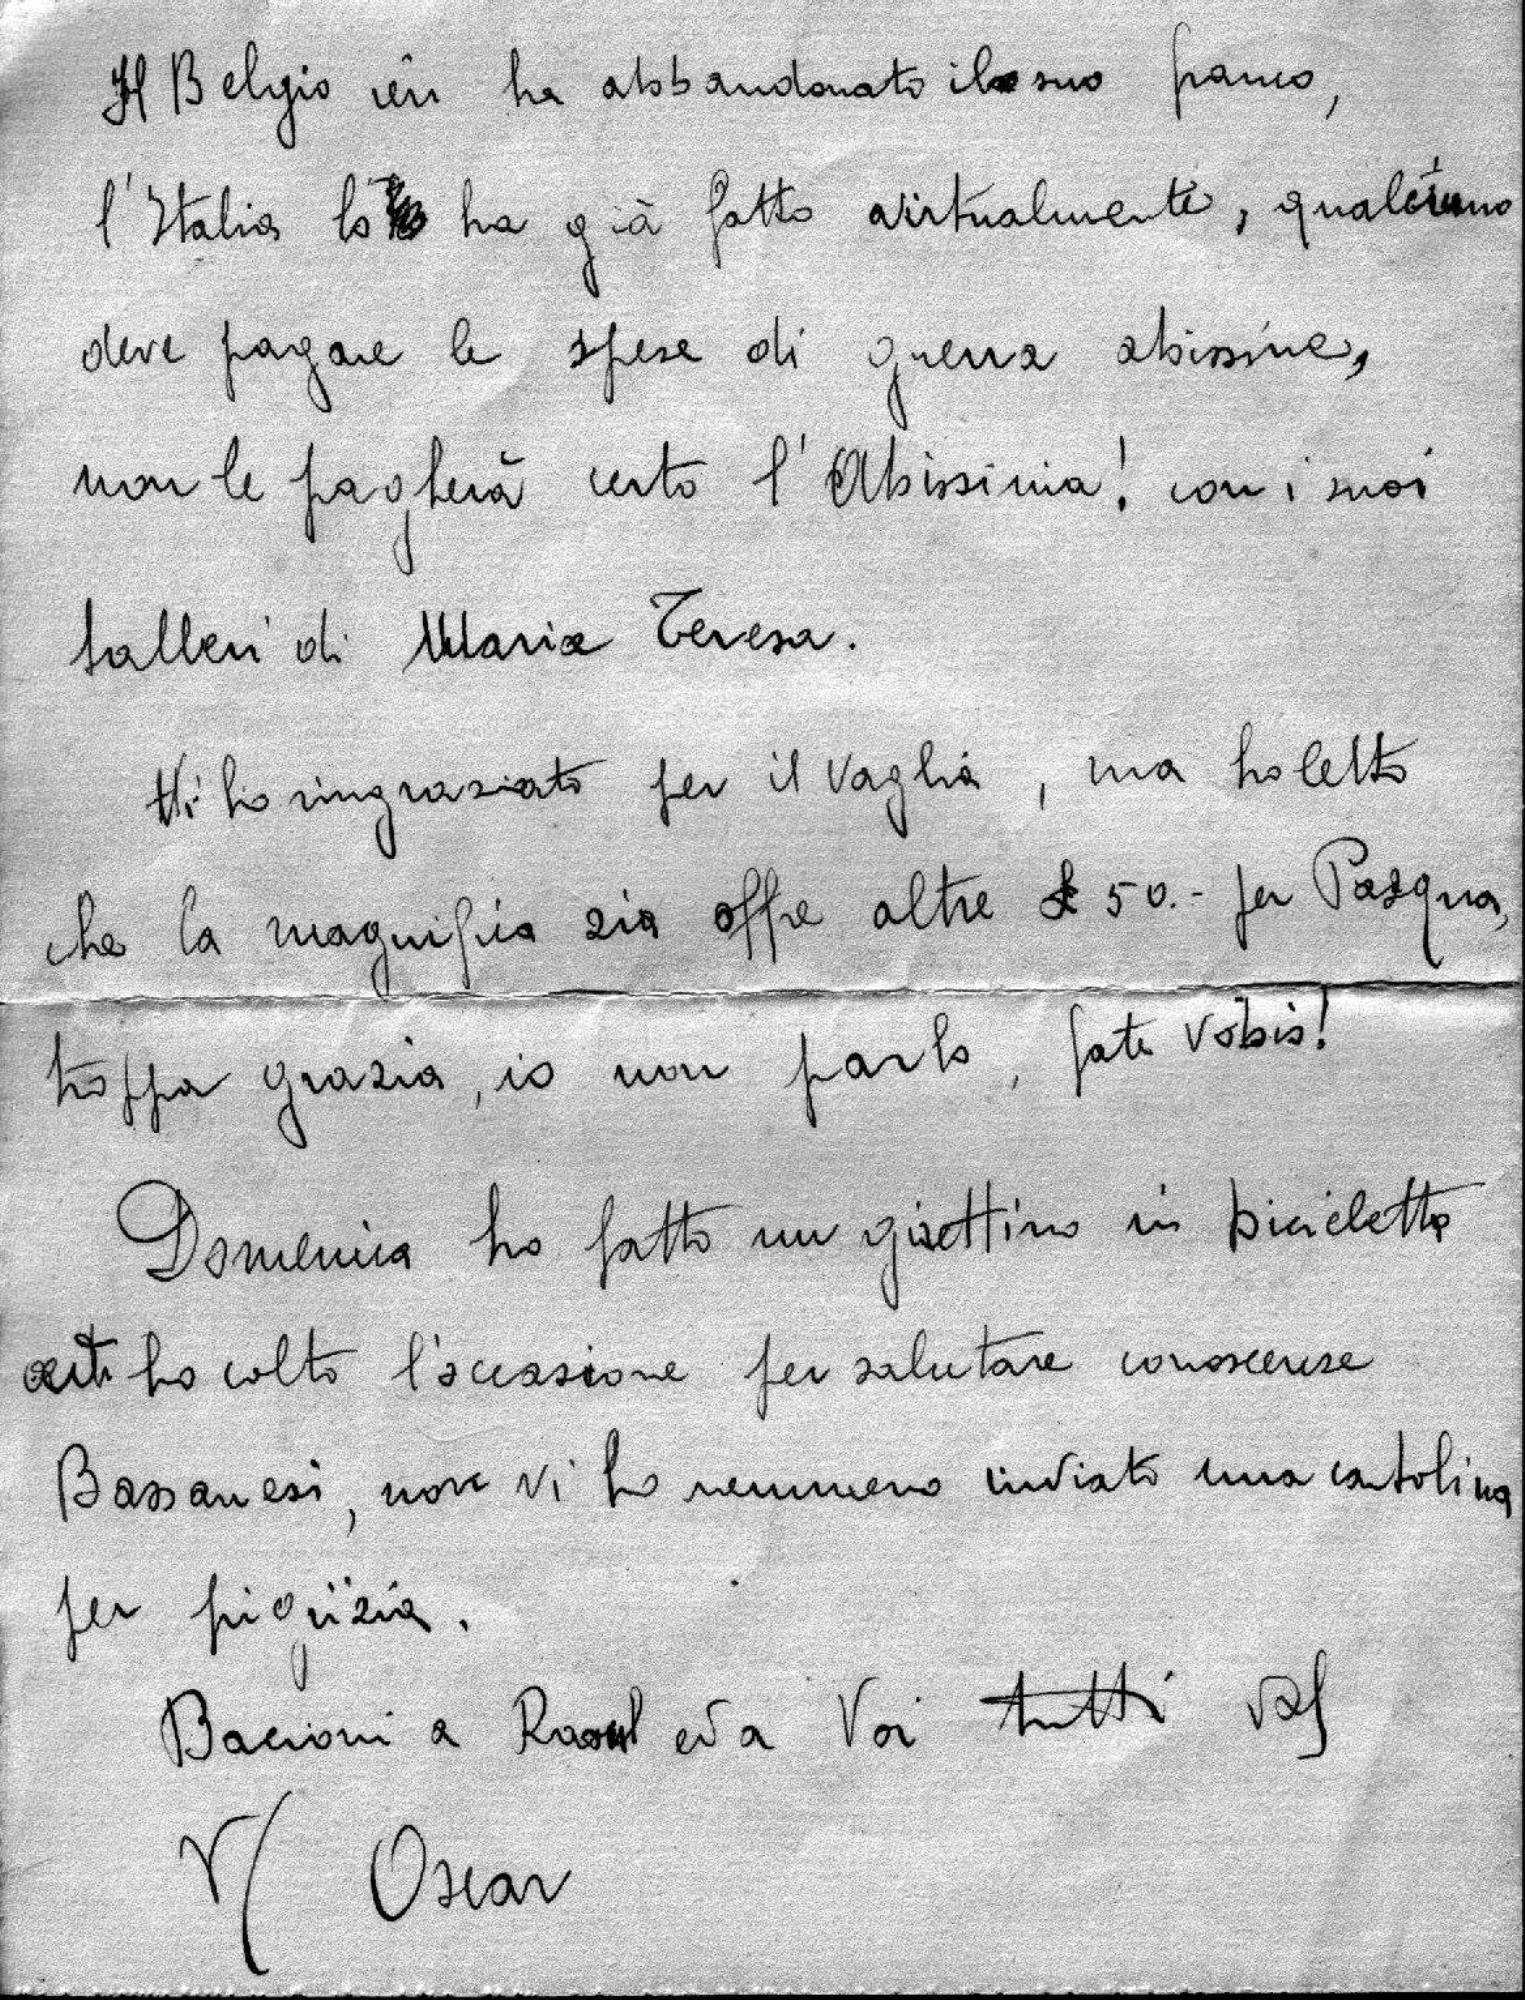 Il Belgio ieri ha abbandonato il suo franco,
l'Italia lo ha già fatto virtualmente, qualcuno
deve pagare le spese di guerra abissine,
non le pagherà certo l'Abissinia! con i suoi
talleri di Maria Teresa.
Vi ho ringraziato per il vaglia, ma ho letto
che la magnifica zia offre altre £ 50.- per Pasqua,
troppa grazia, io non parlo, fate vobis!
Domenica ho fatto un giretto in bicicletta
ho colto l'occasione per salutare conoscenze
Bassanesi, non vi ho nemmeno inviato una cartolina
per pigrizia.
Bacioni a Raoul ed a Voi tutti
Oscar